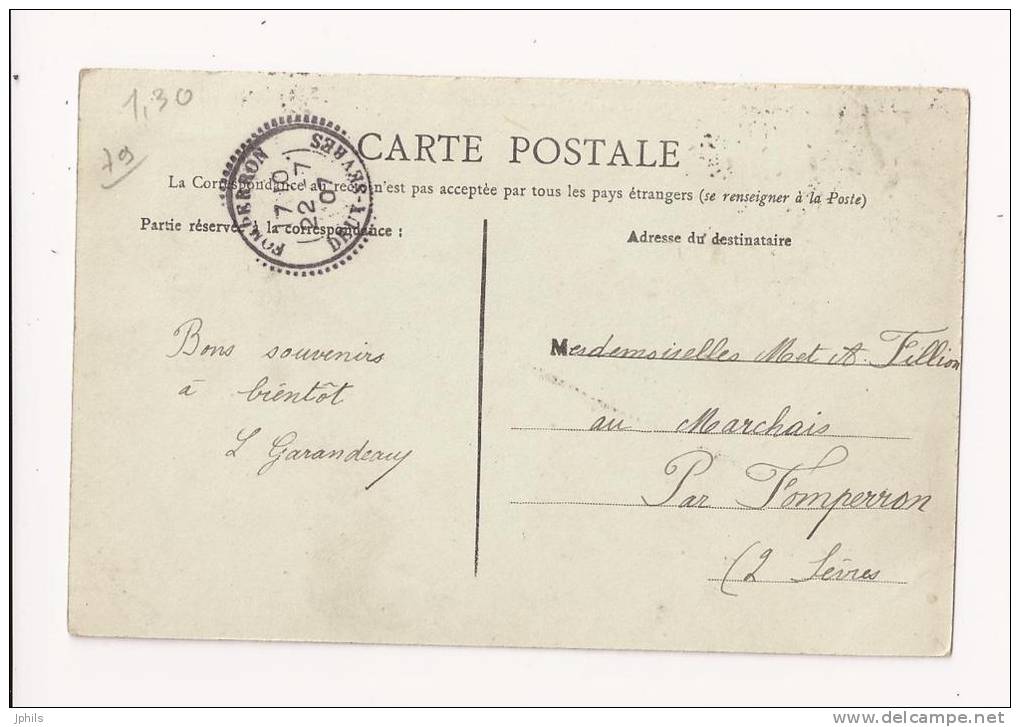 1,30
79
CARTE POSTALE
La Correspondance au recto n'est pas acceptée par tous les pays étrangers (se renseigner à la Poste)
FOMPERRON
DEUX-SÈVRES
22 7
07
Partie réservée à la correspondance :
Adresse du destinataire
Bons souvenirs
à bientôt
L Garandeau
Mesdemoiselles M et A. Fillion
au Marchais
Par Fomperron
(2 Sèvres
jphils
www.delcampe.net